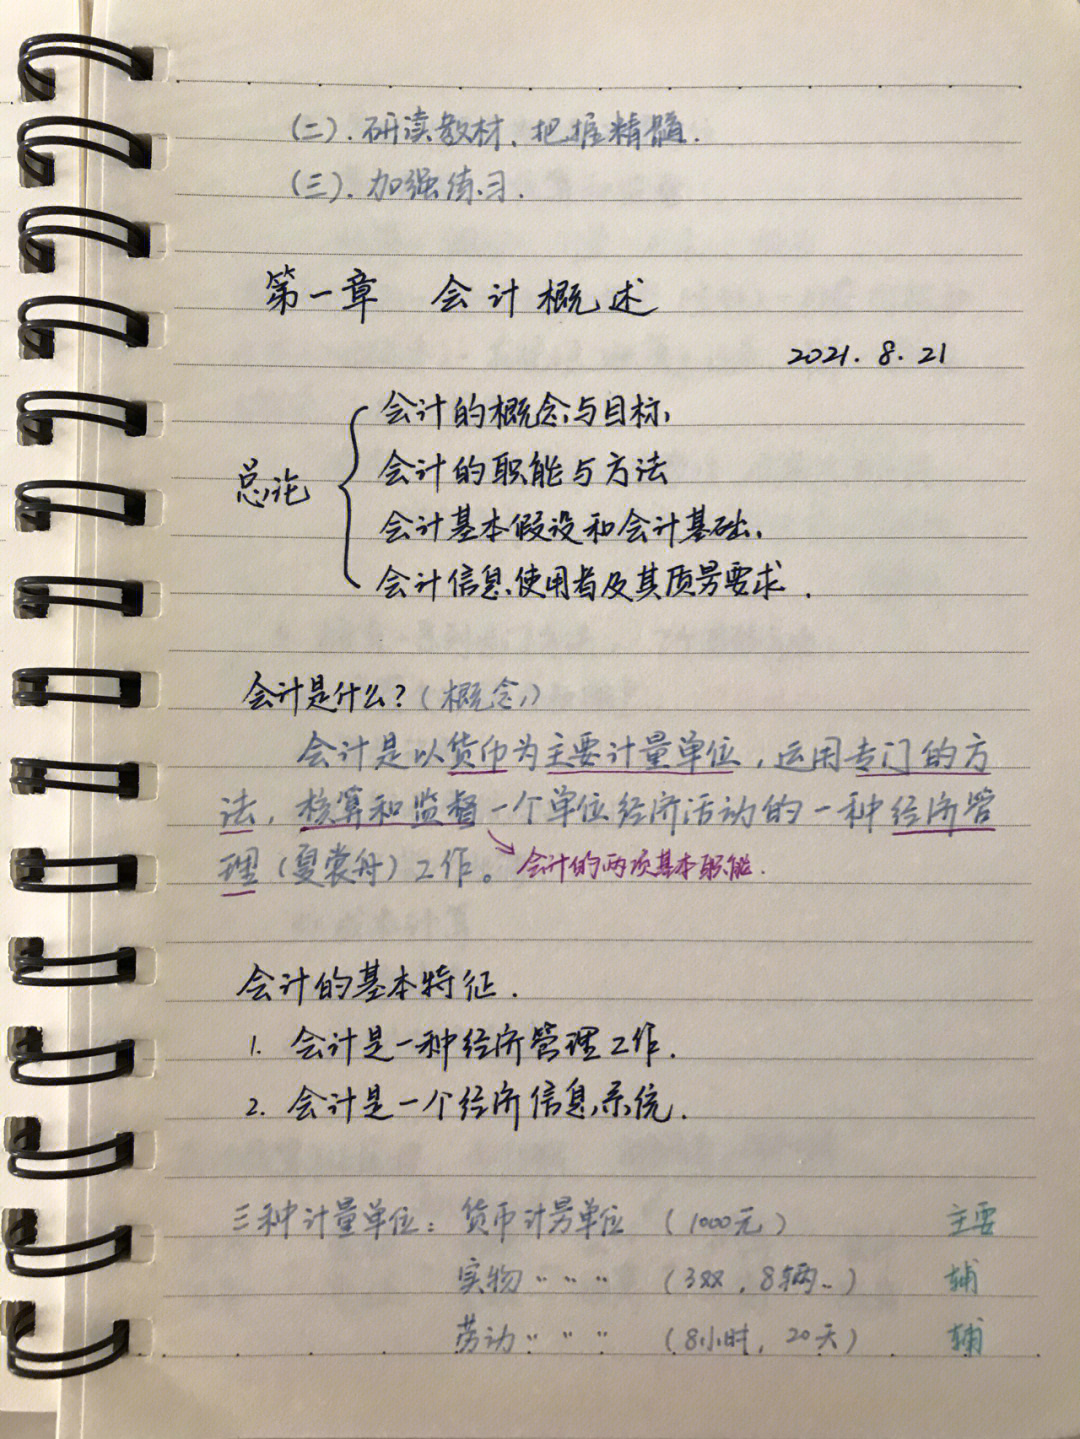 (二).研读教材、把握精髓.
(三).加强练习.
第一章 会计概述
2021.8.21
总论
会计的概念与目标
会计的职能与方法
会计基本假设和会计基础、
会计信息使用者及其质量要求.
会计是什么?(概念)
会计是以货币为主要计量单位,运用专门的方
法,核算和监督一个单位经济活动的一种经济管
理(夏裳舟)工作。会计的两项基本职能.
会计的基本特征.
1. 会计是一种经济管理工作.
2. 会计是一个经济信息系统.
三种计量单位: 货币计量单位 (1000元) 主要
实物 〃 〃 〃 (3双,8辆..) 辅
劳动 〃 〃 〃 (8小时,20天) 辅